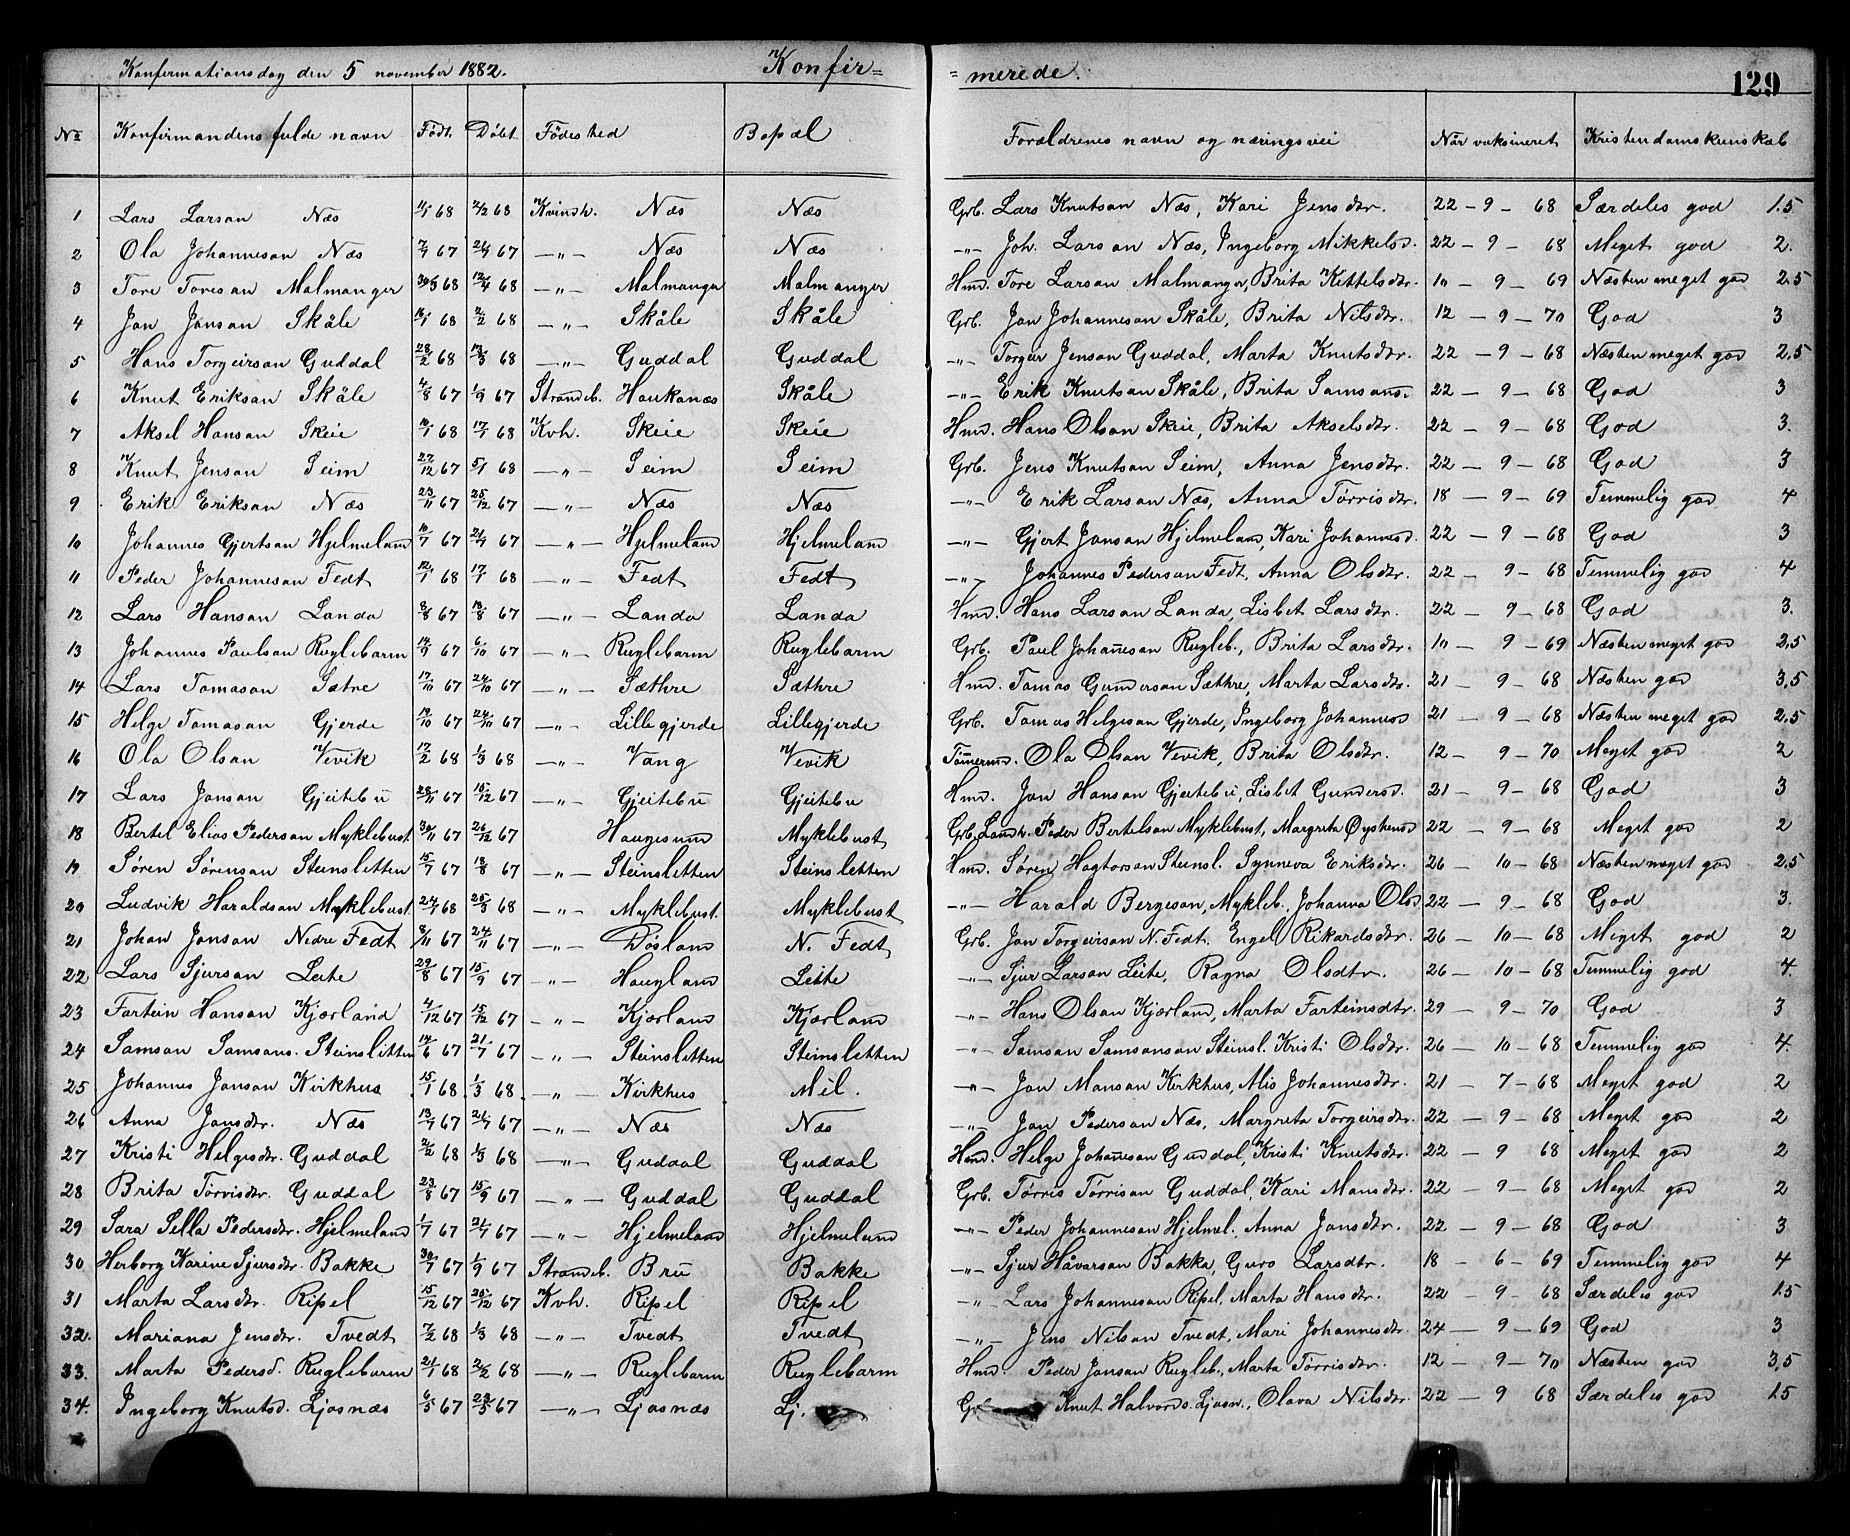 Konfirmationsdag den 5 november 1882. Konfir= = merede 129
No Konfirmandens fulde navn Født. Døbt. Fødested Bopæl Forældrenes navn og næringsvei Når vaksineret Kristendomskunskab
1 Lars Larsan Næs 68 68 Kvindh. Næs Næs Grb. Lars Knutsan Næs, Kari Jensdtr. 22 – 9 – 68 Særdeles god 1.5
2 Ola Johannesan Næs 67 67 —"— Næs Næs —"— Joh. Larsan Næs, Ingeborg Mikkelsd. 22 – 9 – 68 Meget god 2.
3 Tore Toresan Malmanger 68 68 —"— Malmanger Malmanger Hmd. Tore Larsan Malmanger, Brita Kittelsdtr. 10 – 9 – 69 Næsten meget god 2.5
4 Jan Jansan Skåle 68 2/2 68 —"— Skåle Skåle Grb. Jan Johannesan Skåle, Brita Nilsdtr. 12 – 9 – 70 God 3
5 Hans Torgeirsan Guddal 28/2 68 68 —"— Guddal Guddal —"— Torgeir Jensan Guddal, Marta Knutsdtr. 22 – 9 – 68 Næsten meget god 2.5
6 Knut Eriksan Skåle 4/8 67 1/9 67 Strandeb. Haukanæs Skåle —"— Erik Knutsan Skåle, Brita Samsans. 22 – 9 – 68 God 3
7 Aksel Hansan Skeie 68 17/1 68 Kvh. Skeie Skeie Hmd. Hans Olsan Skeie, Brita Akselsdtr. 22 – 9 – 68 God 3.
8 Knut Jensan Seim 27/12 67 5/1 68 —"— Seim Seim Grb. Jens Knutsan Seim, Anna Jensdtr. 22 – 9 – 68 God 3
9 Erik Eriksan Næs 23/11 67 25/12 67 —"— Næs Næs —"— Erik Larsan Næs, Anna Tørrisdtr. 18 – 9 – 69 Temmelig god 4
10 Johannes Gjertsan Hjelmeland 67 67 —"— Hjelmeland Hjelmeland —"— Gjert Jansan Hjelmeland, Kari Johannesd. 22 – 9 – 68 God 3
11 Peder Johannesan Fedt 12/1 68 17/1 68 —"— Fedt Fedt —"— Johannes Pedersan Fedt, Anna Olsdtr. 22 – 9 – 68 Temmelig god 4
12 Lars Hansan Landa 67 18/8 67 —"— Landa Landa Hmd. Hans Larsan Landa, Lisbet Larsdtr. 22 – 9 – 68 God 3.
13 Johannes Paulsan Ruglebarm 14/9 67 6/10 67 —"— Ruglebarm Ruglebarm Grb. Paul Johanesan Rugleb., Brita Larsdtr. 10 – 9 – 69 Næsten meget god 2.5
14 Lars Tomasan Sætre 17/10 67 24/10 67 —"— Sæthre Sæthre Hmd. Tomas Gundersan Sæthre, Marta Larsdtr. 21 – 9 – 68 Næsten god 3.5
15 Helge Tomasan Gjerde 67 24/10 67 —"— Lillegjerde Lillegjerde Grb. Tomas Helgesan Gjerde, Ingeborg Johannesd 21 – 9 – 68 Næsten meget god 2.5
16 Ola Olsan Vevik 17/2 68 1/3 68 —"— Vang Vevik Tømermd. Ola Olsan Vevik, Brita Olsdtr. 12 – 9 – 70 Meget god 2
17 Lars Jansan Gjeitebu 28/11 67 15/12 67 —"— Gjeitebu Gjeitebu Hmd. Jan Hansan Gjeitebu, Lisbet Gundersd. 21 – 9 – 68 God 3
18 Bertel Elias Pedersan Myklebust 67 26/12 67 Haugesund Myklebust Grb. Landh. Peder Bertelsan Myklebust, Margreta 22 – 9 – 68 Meget god 2
19 Søren Sørensan Steinsletten 15/7 67 18/8 67 —"— Steinsletten Steinsletten Hmd. Søren Hagtorsan Steinsl. Synneva Eriksdtr. 26 – 10 – 68 Næsten meget god 2.5
20 Ludvik Haraldsan Myklebust. 68 68 —"— Myklebust. Myklebust —"— Harald Bergesan, Mykleb. Johanna Olsd 22 – 9 – 68 God 3.
21 Johan Jansan Nedre Fedt 67 24/11 67 —"— Døsland N. Fedt Grb. Jan Torgeirsan N. Fedt. Engel Rikardsdtr. 26 – 10 – 68 Meget god 2
22 Lars Sjursan Leite 29/8 67 15/9 67 —"— Haugland Leite —"— Sjur Larsan Leite, Ragna Olsdtr. 26 – 10 – 68 Temmelig god 4.
23 Fartein Hansan Kjærland 4/12 67 15/12 67 —"— Kjærland Kjærland —"— Hans Olsan Kjærland, Marta Farteinsdtr. 29 – 9 – 70 God 3
24 Samsan Samsans. Steinsletten 14/6 67 21/7 67 —"— Steinsletten Steinsletten —"— Samsan Samsansan Steinsl. Kristi Olsdtr. 26 – 10 – 68 Temmelig god 4.
25 Johannes Jansan Kirkhus 15/1 68 1/3 68 —"— Kirkhus Mel. —"— Jan Mansan Kirkhus, Alis Johannesdtr. 21 – 7 – 68 Meget god 2
26 Anna Jansdtr. Næs 67 67 —"— Næs Næs —"— Jan Pedersan Næs, Margreta Torgeirsdtr. 22 – 9 – 68 Meget god 2
27 Kristi Helgesdtr. Guddal 68 1/3 68 —"— Guddal Guddal Hmd. Helge Johanesan Guddal, Kristi Knutsdtr. 22 – 9 68 Meget god 2
28 Brita Tørrisdtr. Guddal 23/8 67 15/9 67 —"— Guddal Guddal Grb. Tørris Tørrisan Guddal, Kari Mansdtr. 22 – 9 – 68 Meget god 2
29 Sara Sella Pedersdtr. Hjelmeland 1/7 67 67 —"— Hjelmeland Hjelmeland —"— Peder Johannesan Hjelmel. Anna Jansdtr. 22 – 9 – 68 God 3
30 Herborg Karine Sjursdtr. Bakke 30/7 67 1/9 67 Strandeb. Bru Bakke —"— Sjur Håvarsan Bakka, Guro Larsdtr. 18 – 6 – 69 Temmelig god 4
31 Marta Larsdtr. Ripel 15/12 67 67 Kvh. Ripel Ripel —"— Lars Johannesan Ripel, Marta Hansdtr. 22 – 9 – 68 Særdeles god 1.5
32. Mariana Jensdtr. Tvedt 7/2 68 1/3 68 —"— Tvedt Tvedt —"— Jens Nilsan Tvedt, Mari Johannesdtr. 24 – 9 – 69 God 3
33. Marta Pedersd. Ruglebarm 68 68 —"— Ruglebarm Ruglebarm Hmd. Peder Jansan Rugleb., Marta Tørrisdtr. 12 – 9 – 70 Næsten god 3,5
34. Ingeborg Knutsd. Ljosnæs 6/5 67 67 —"— Ljosnæs Lj. Knut Halvords. Ljosn., Olava Nilsdtr. 22 – 9 68 Særdeles god 1.5